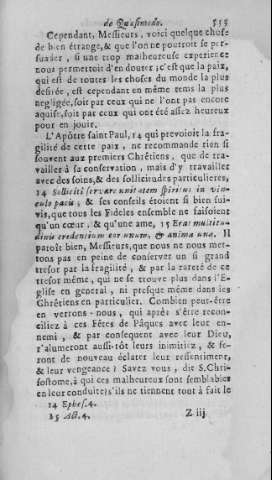 de Quasimodo. 535
Cependant, Messieurs, voici quelque chose
de bien étrange, & que l'on ne pourroit se per-
suader, si une trop malheureuse experience
nous permettoit d'en douter; c'est que la paix,
qui est de toutes les choses du monde la plus
desirée, est cependant en même tems la plus
negligée, soit par ceux qui ne l'ont pas encore
aquise, soit pas ceux qui ont été assez heureux
pour en jouir.
L'Apôtre saint Paul, 14 qui prevoioit la fra-
gilité de cette paix, ne recommande rien si
souvent aux premiers Chrêtiens, que de tra-
vailler à sa conservation, mais d'y travailler
avec des soins, & des sollicitudes particulieres,
14 Solliciti servare unitatem spiritus in vin-
culo pacis; & ses conseils étoient si bien sui-
vis, que tous les Fideles ensemble ne faisoient
qu'un cœur, & qu'une ame, 15 Erat multitu-
dinis credentium cor unum, & anima una. Il
paroît bien, Messieurs, que nous ne nous met-
tons pas en peine de conserver un si grand
tresor par la fragilité, & par la rareté de ce
tresor même, qui ne se trouve plus dans l'E-
glise en general, ni presque même dans les
Chrêtiens en particulier. Combien peut-être
en verrons-nous, qui aprés s'être recon-
ciliez à ces Fêtes de Pâques avec leur en-
nemi, & par consequent avec leur Dieu,
r'alumeront aussi-tôt leurs inimitiez, & fe-
ront de nouveau éclater leur ressentiment,
& leur vengeance? Savez vous, dit S. Chri-
sostome, à qui ces malheureux sont semblables
en leur conduite; s'ils ne tiennent tout à fait le
14 Ephes. 4.
15 Act. 4. Z iij